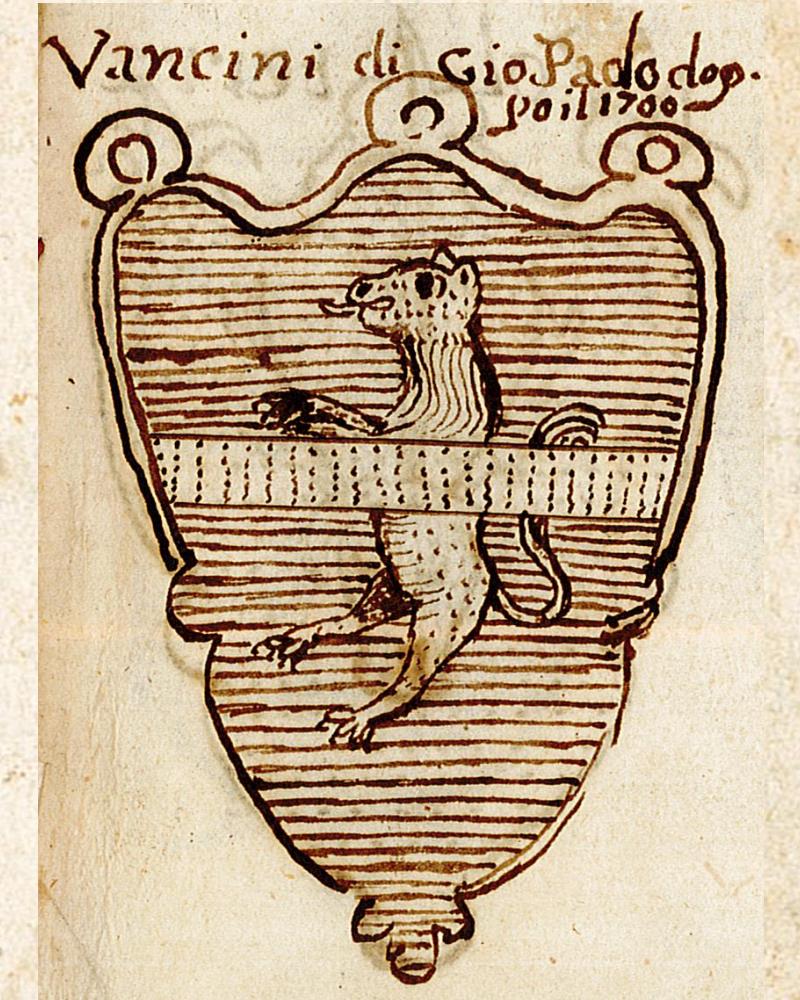 Vancini di Gio Paolo dop.
po il 1700